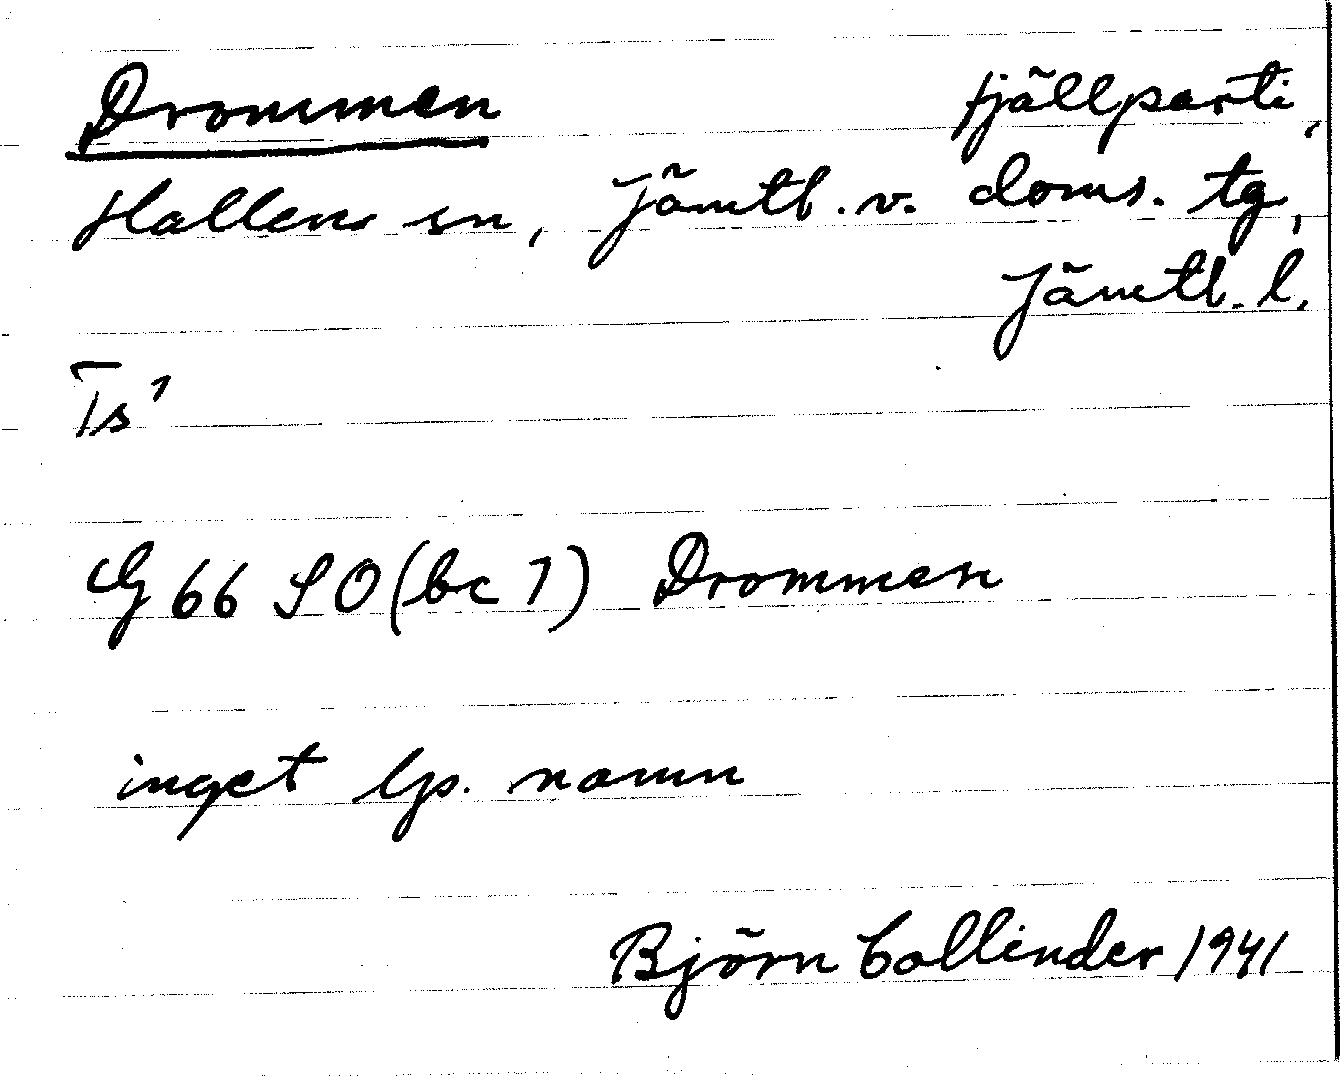 Drommen fjällparti,
Hallens sn, Jämtl. v. doms. tg,
Jämtl. l.
Ts'
G 66 SO (bc 7) Drommen
inget lp. namn
Björn Collinder 1941